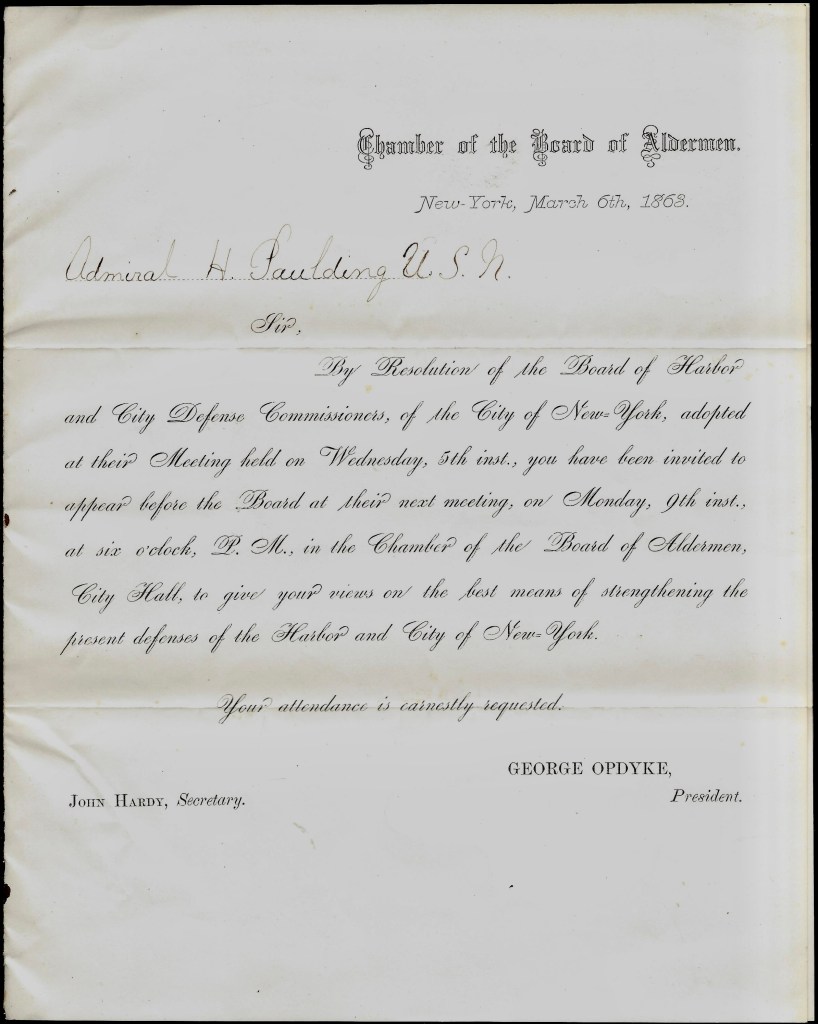 Chamber of the Board of Aldermen.
New-York, March 6th, 1863.
Admiral H. Paulding U. S. N.
Sir,
By Resolution of the Board of Harbor
and City Defense Commissioners, of the City of New-York, adopted
at their Meeting held on Wednesday, 5th inst., you have been invited to
appear before the Board at their next meeting, on Monday, 9th inst.,
at six o'clock, P. M., in the Chamber of the Board of Aldermen,
City Hall, to give your views on the best means of strengthening the
present defenses of the Harbor and City of New-York.
Your attendance is earnestly requested.
GEORGE OPDYKE,
President.
John Hardy, Secretary.